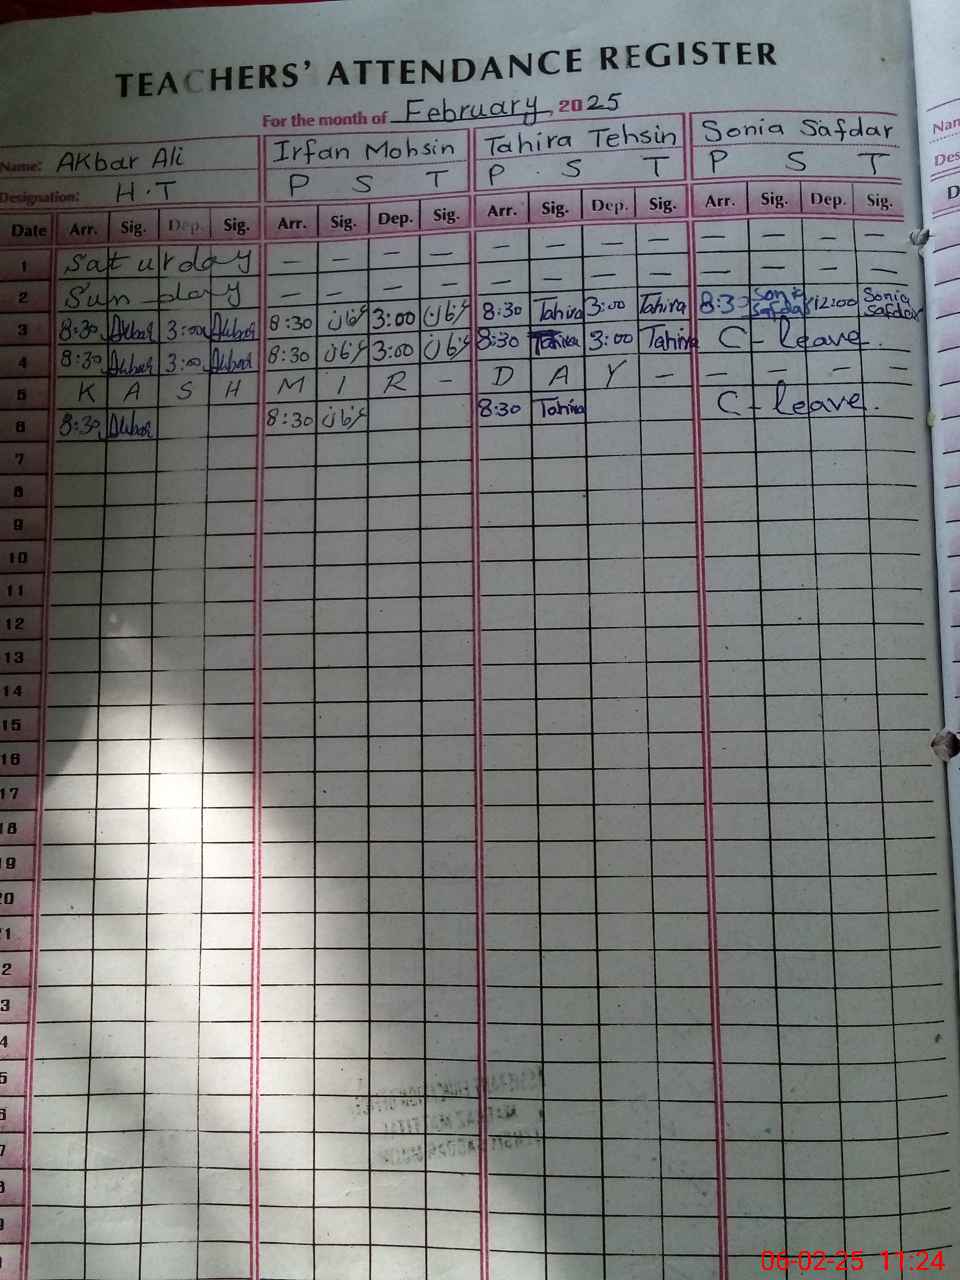 TEACHERS' ATTENDANCE REGISTER
For the month of February, 2025
Name: AKbar Ali Irfan Mohsin Tahira Tehsin Sonia Safdar
Designation: H.T P S T P . S T P S T
Date Arr. Sig. Dep. Sig. Arr. Sig. Dep. Sig. Arr. Sig. Dep. Sig. Arr. Sig. Dep. Sig.
1 Saturday — — — — — — — — — — — —
2 Sun-day — — — — — — — — — — — —
3 8:30 Akbar 3:00 Akbar 8:30 عرفان 3:00 عرفان 8:30 Tahira 3:00 Tahira 8:30 Sonia Safdar 12:00 Sonia Safdar
4 8:30 Akbar 3:00 Akbar 8:30 عرفان 3:00 عرفان 8:30 Tahira 3:00 Tahira C - leave.
5 K A S H M I R - D A Y — — — — —
6 8:30 Akbar 8:30 عرفان 8:30 Tahira C - leave.
7
8
9
10
11
12
13
14
15
16
17
18
19
20
1
2
3
4
5
6
7
8
9
Nam
Des
D
06-02-25 11:24